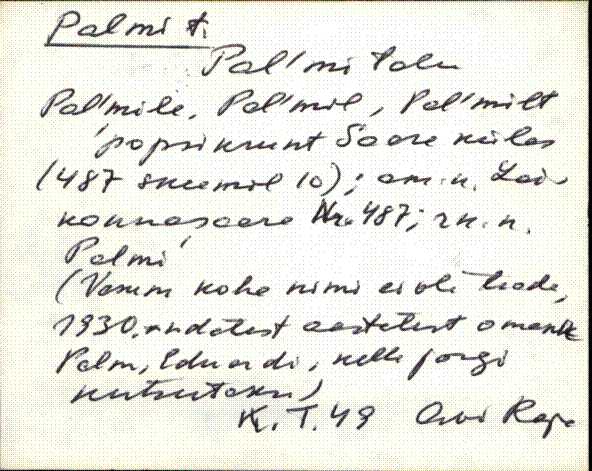 Palmi t.
Pal'mi talu
Pal'mile, Pal'mil, Pal'milt
popsikrunt Saare külas
(487 skeemil 10); am. n. Lai-
konnasaare Nr. 487; rk. n.
Palmi
(Vanem koha nimi ei ole teada,
1930.ndatest aastatest omanik
Palm, Eduardi, kelle järgi
kutsutakse)
K. T. 49 Arvi